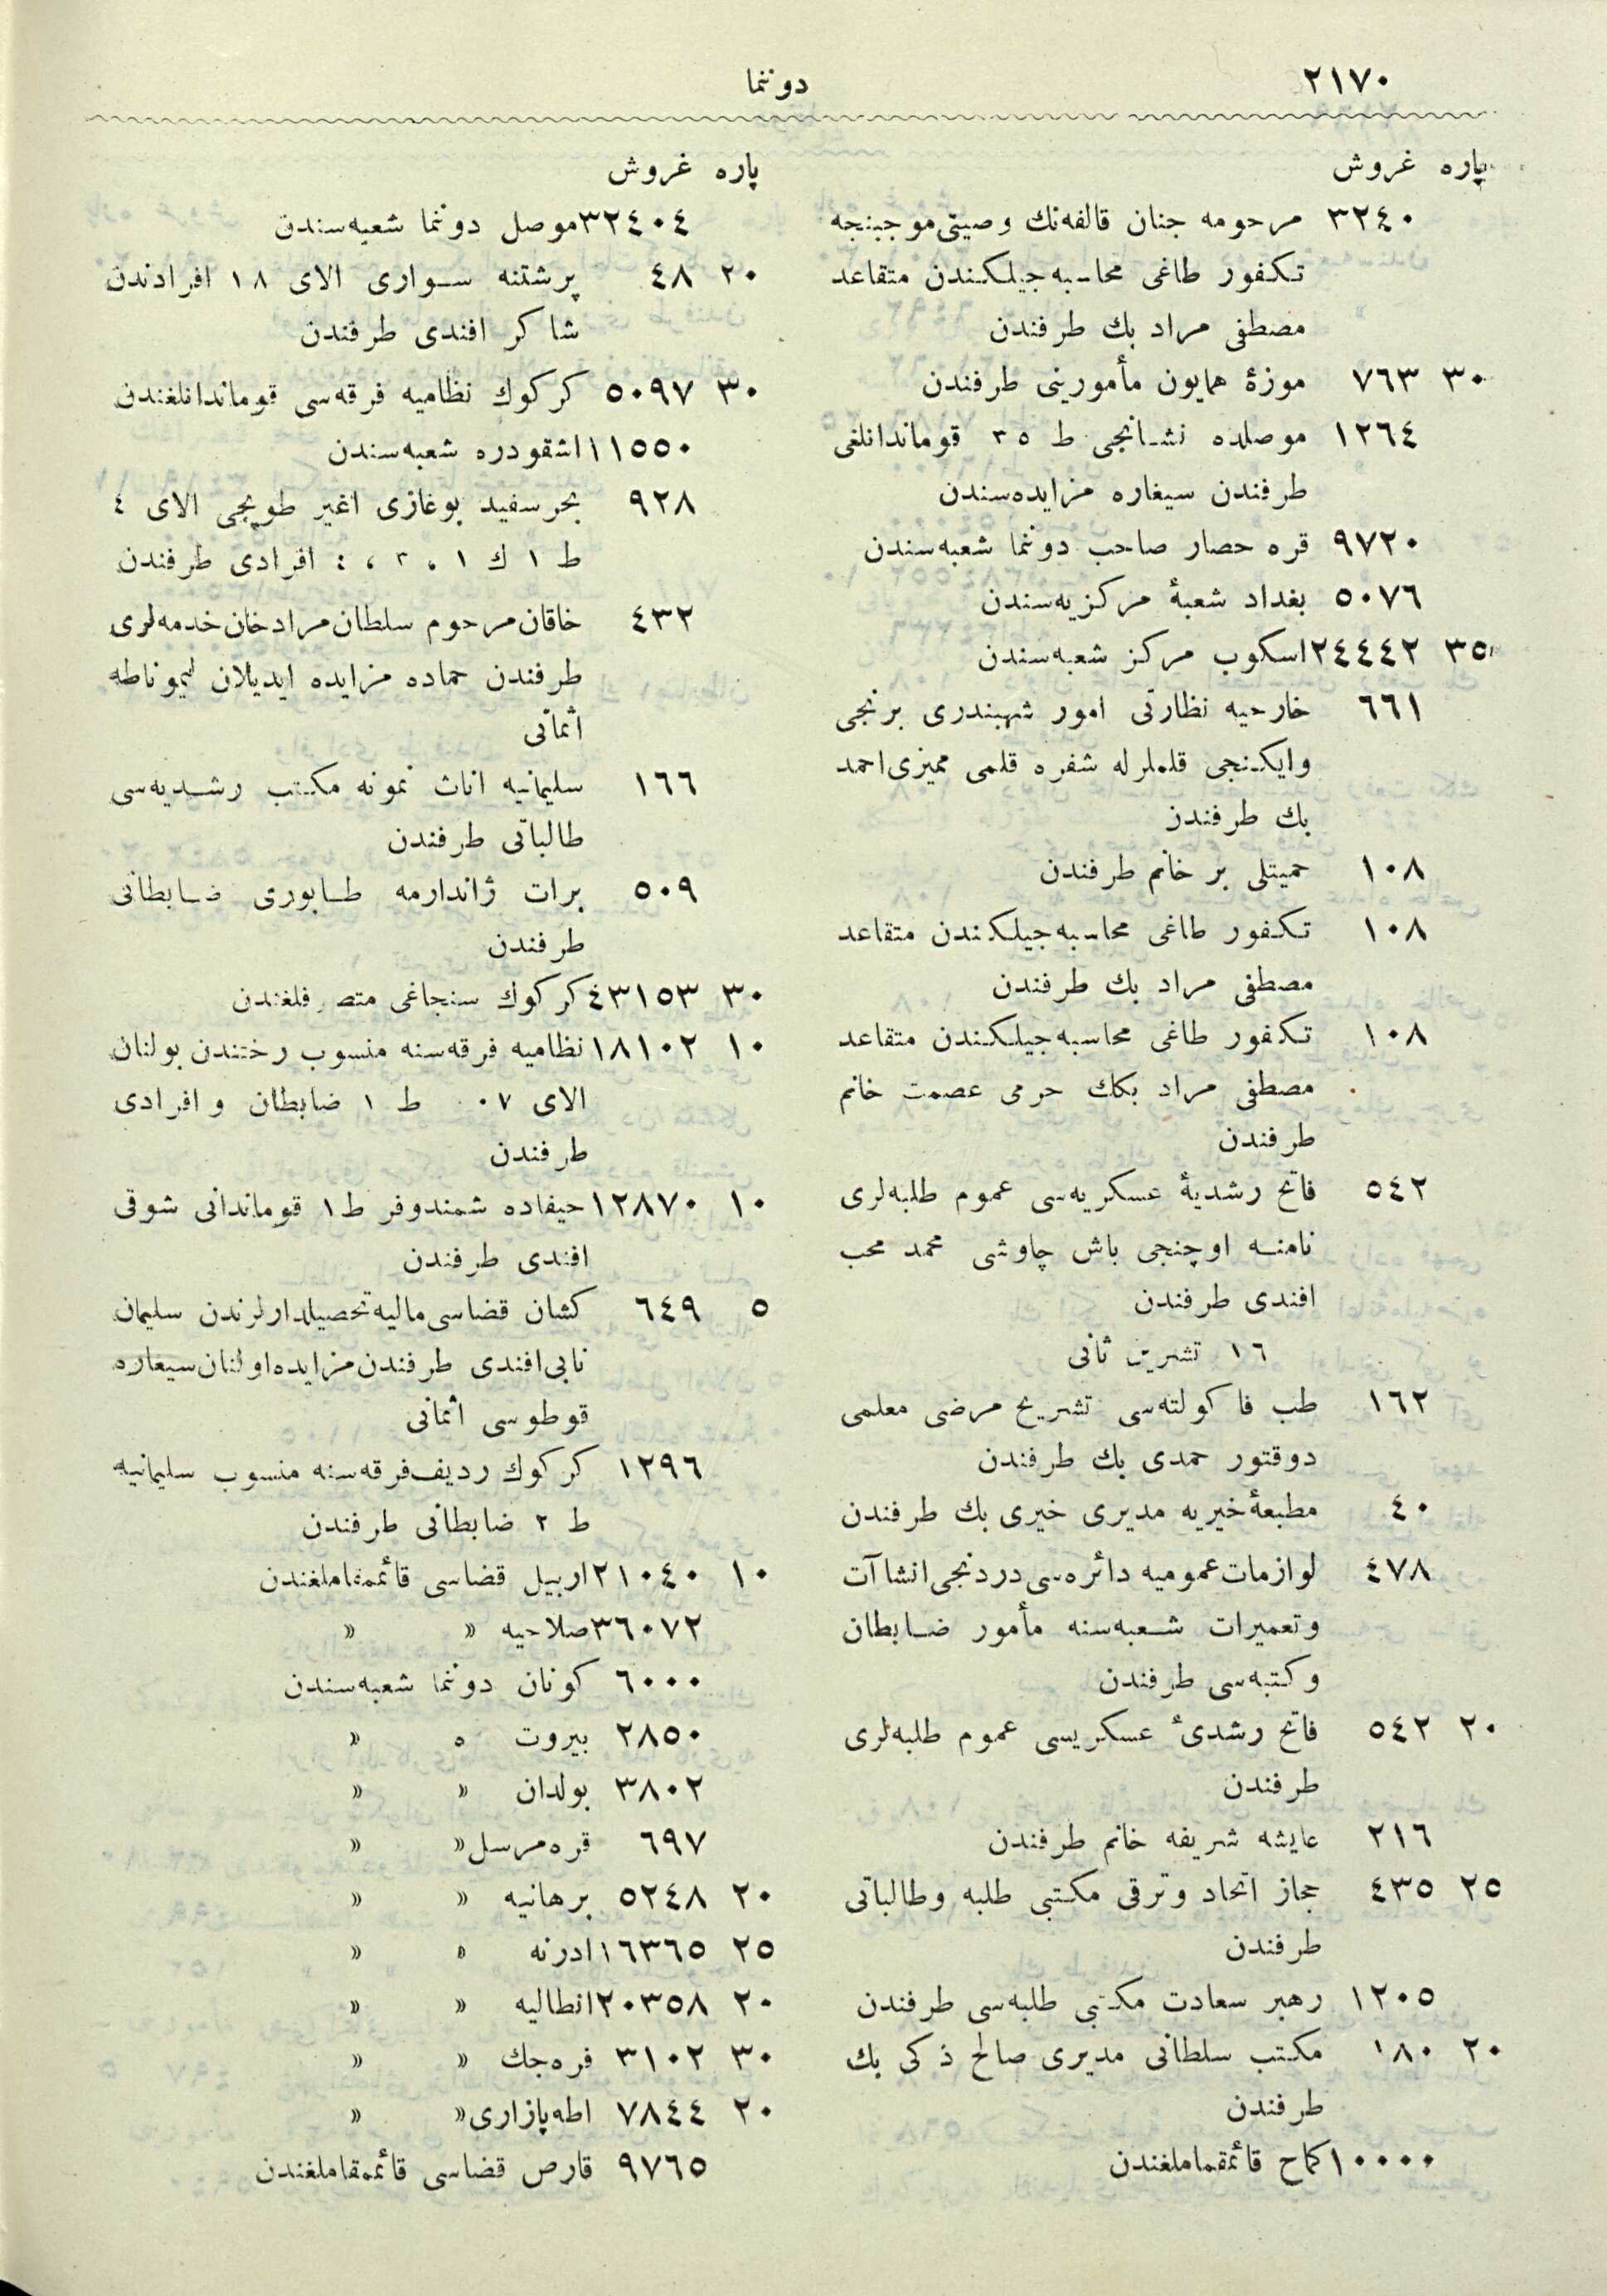 ٢١٧٠
دوننما
پاره غروش
٣٢٤٠ مرحومه جنان قالفه‌نك وصیتی موجبنجه
تكفور طاغی محاسبه‌جیلكندن متقاعد
مصطفی مراد بك طرفندن
٣٠ ٧٦٣ موزهٔ همایون مأمورینی طرفندن
١٢٦٤ موصلده نشانجی ط ٣٥ قوماندانلغی
طرفندن سیغاره مزایده‌سندن
٩٧٢٠ قره حصار صاحب دوننما شعبه‌سندن
٥٠٧٦ بغداد شعبهٔ مركزیه‌سندن
٣٥ ٢٤٤٤٢ اسكوب مركز شعبه‌سندن
٦٦١ خارجیه نظارتی امور شهبندری برنجی
وایكنجی قلملرله شفره قلمی ممیزی احمد
بك طرفندن
١٠٨ حمیتلی بر خانم طرفندن
١٠٨ تكفور طاغی محاسبه‌جیلكندن متقاعد
مصطفی مراد بك طرفندن
١٠٨ تكفور طاغی محاسبه‌جیلكندن متقاعد
مصطفی مراد بكك حرمی عصمت خانم
طرفندن
٥٤٢ فاتح رشدیهٔ عسكریه‌سی عموم طلبه‌لری
نامنه اوچنجی باش چاوشی محمد محب
افندی طرفندن
١٦ تشرین ثانی
١٦٢ طب فاكولته‌سی تشریح مرضی معلمی
دوقتور حمدی بك طرفندن
٤٠ مطبعهٔ خیریه مدیری خیری بك طرفندن
٤٧٨ لوازمات عمومیه دائره‌سی دردنجی انشاآت
وتعمیرات شعبه‌سنه مأمور ضابطان
وكتبه‌سی طرفندن
٢٠ ٥٤٢ فاتح رشدیٔ عسكریسی عموم طلبه‌لری
طرفندن
٢١٦ عایشه شریفه خانم طرفندن
٢٥ ٤٣٥ حجاز اتحاد وترقی مكتبی طلبه وطالباتی
طرفندن
١٢٠٥ رهبر سعادت مكتبی طلبه‌سی طرفندن
٢٠ ١٨٠ مكتب سلطانی مدیری صالح ذكی بك
طرفندن
١٠٠٠٠ كماح قائمقماملغندن
پاره غروش
٣٢٤٠٤ موصل دوننما شعبه‌سندن
٢٠ ٤٨ پرشتنه سواری الای ١٨ افرادندن
شاكر افندی طرفندن
٣٠ ٥٠٩٧ كركوك نظامیه فرقه‌سی قوماندانلغندن
١١٥٥٠ اشقودره شعبه‌سندن
٩٢٨ بحرسفید بوغازی اغیر طوپجی الای ٤
ط ١ ك ١ ، ٢ ، ٤ افرادی طرفندن
٤٣٢ خاقان مرحوم سلطان مراد خان خدمه‌لری
طرفندن حماده مزایده ایدیلان لیموناطه
اثمانی
١٦٦ سلیمانیه اناث نمونه مكتب رشدیه‌سی
طالباتی طرفندن
٥٠٩ برات ژاندارمه طابوری ضابطانی
طرفندن
٣٠ ٤٣١٥٣ كركوك سنجاغی متصرفلغندن
١٠ ١٨١٠٢ نظامیه فرقه‌سنه منسوب رختندن بولنان
الای ٠٧ ط ١ ضابطان وافرادی
طرفندن
١٠ ١٢٨٧٠ حیفاده شمندوفر ط ١ قوماندانی شوقی
افندی طرفندن
٥ ٦٤٩ كشان قضاسی مالیه تحصیلدارلرندن سلیمان
نابی افندی طرفندن مزایده اولنان سیغاره
قوطوسی اثمانی
١٢٩٦ كركوك ردیف فرقه‌سنه منسوب سلیمانیه
ط ٢ ضابطانی طرفندن
١٠ ٢١٠٤٠ اربیل قضاسی قائممقاملغندن
٣٦٠٧٢ صلاحیه « «
٦٠٠٠ كونان دوننما شعبه‌سندن
٢٨٥٠ بیروت « «
٣٨٠٢ بولدان « «
٦٩٧ قره مرسل « «
٢٠ ٥٢٤٨ برهانیه « «
٢٥ ١٦٣٦٥ ادرنه « «
٢٠ ٢٠٣٥٨ انطالیه « «
٣٠ ٣١٠٢ فره‌جك « «
٢٠ ٧٨٤٤ اطه‌پازاری « «
٩٧٦٥ قارص قضاسی قائممقاملغندن